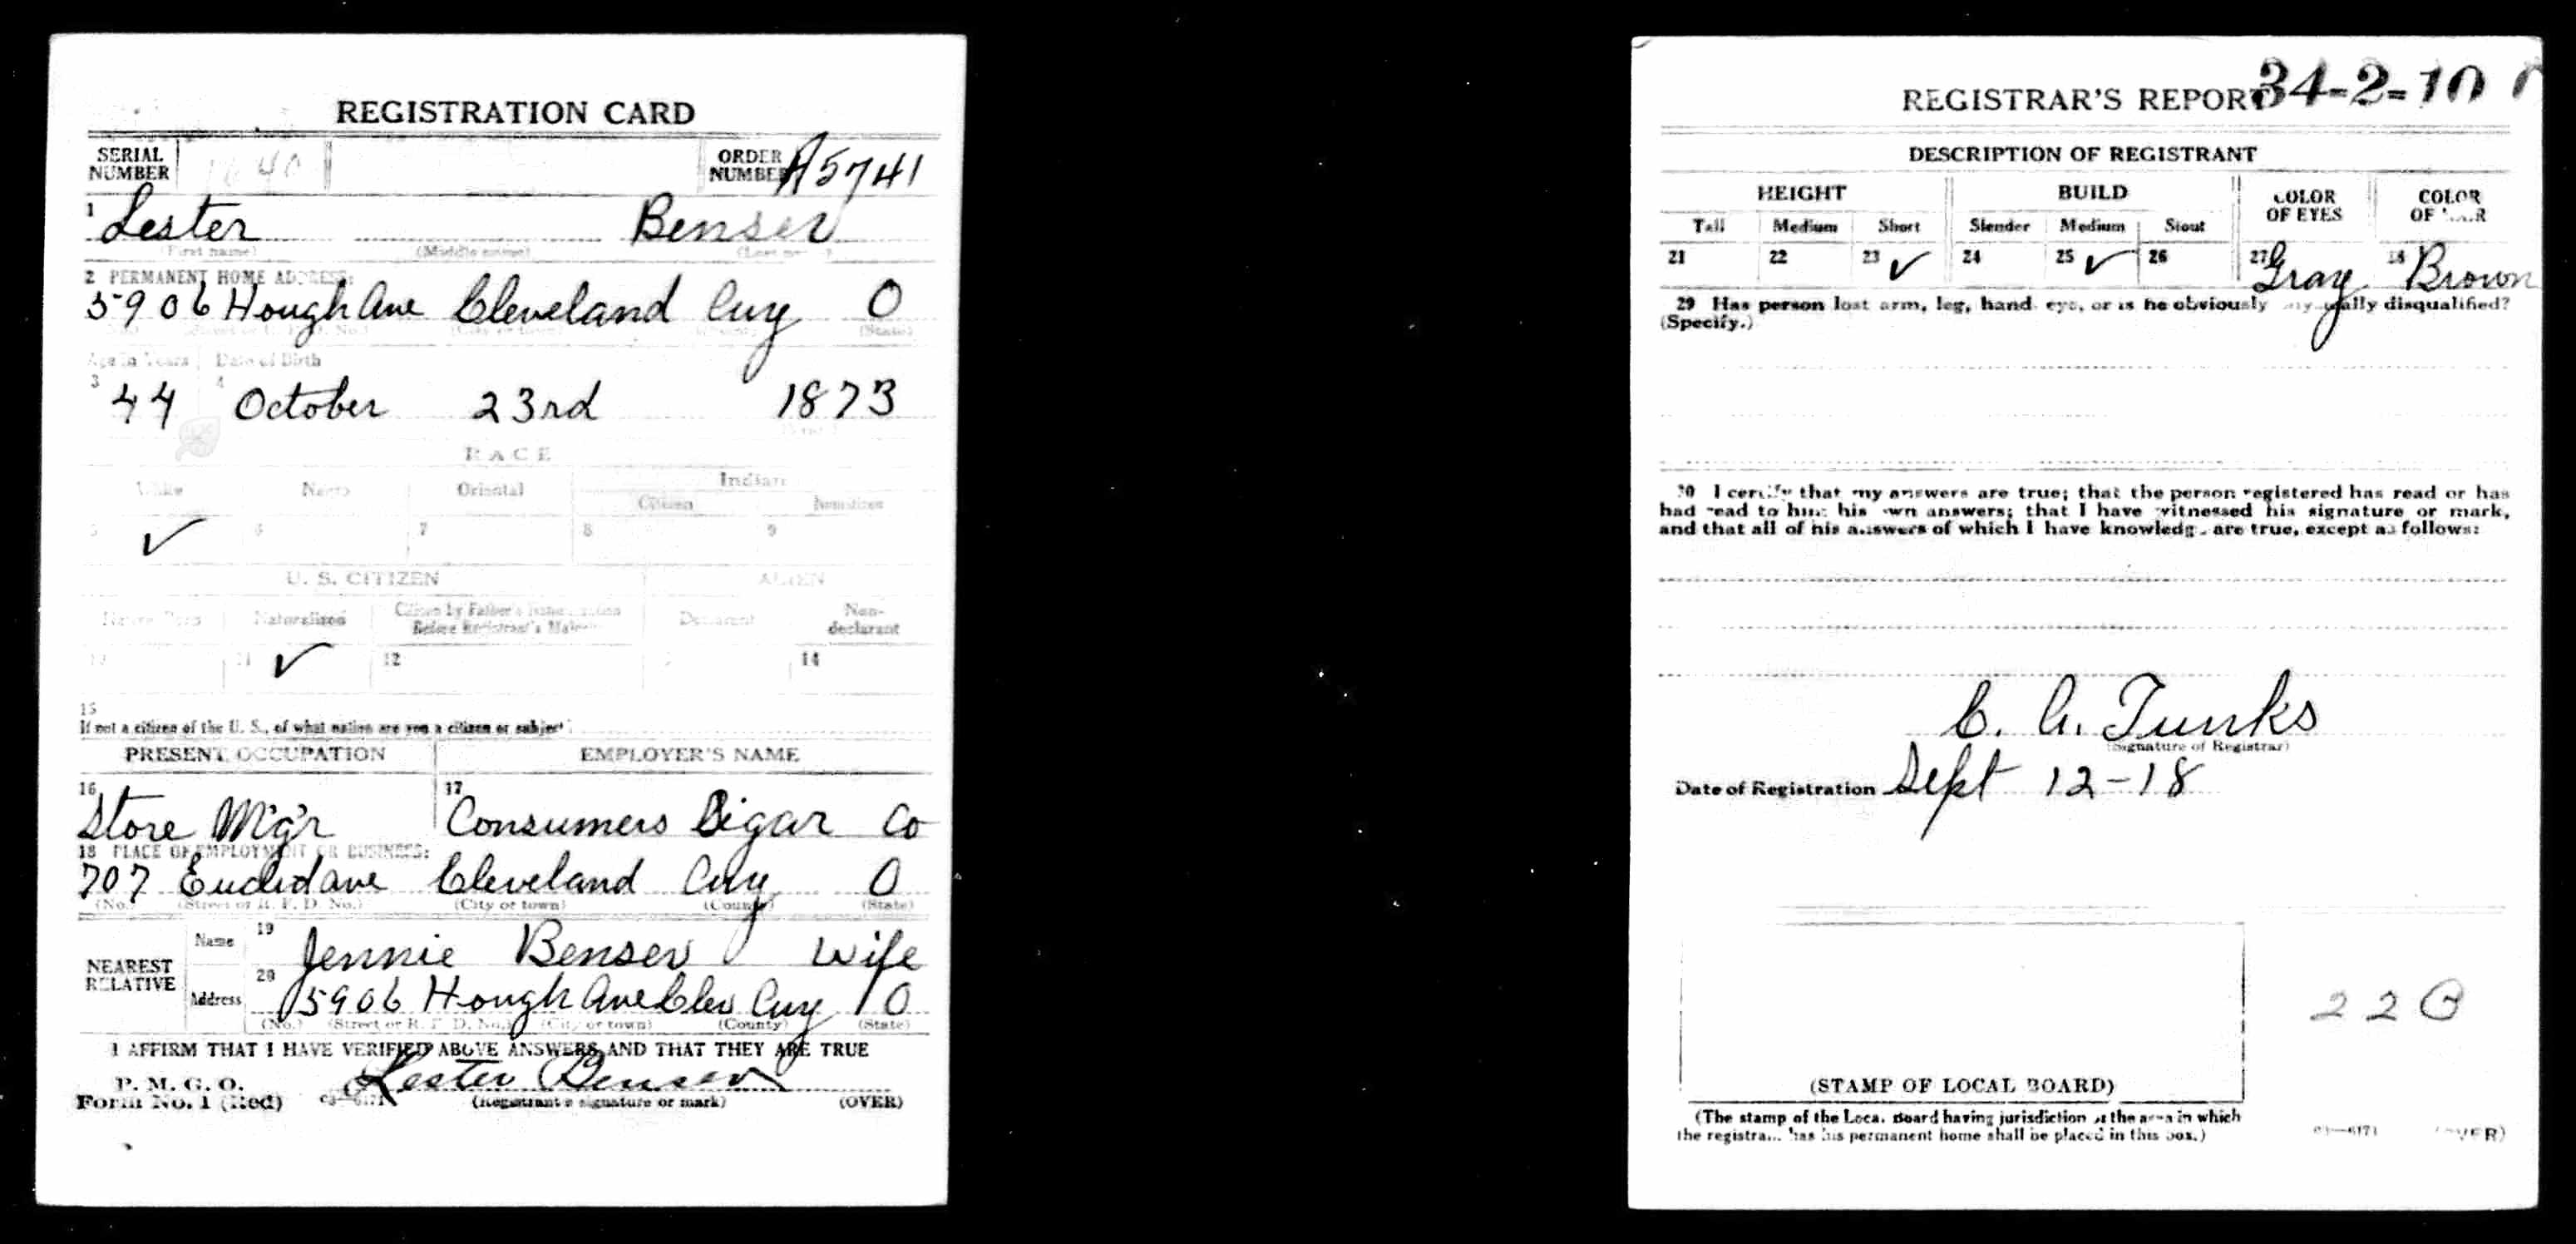 REGISTRATION CARD
SERIAL NUMBER 40 ORDER NUMBER A5741
1 Lester Benser
(First name) (Middle name)
2 PERMANENT HOME ADDRESS:
5906 Hough Ave Cleveland Cuy O
(State)
Age in Years Date of Birth
3 44 4 October 23rd 1873
RACE
White Negro Oriental Indian
Citizen Noncitizen
5 ✓ 6 7 8 9
U. S. CITIZEN ALIEN
Native Born Naturalized Citizen by Father's Naturalization Before Registrant's Majority Declarant Non-declarant
10 11 ✓ 12 14
15
If not a citizen of the U. S., of what nation are you a citizen or subject?
PRESENT OCCUPATION EMPLOYER'S NAME
16 Store M'g'r 17 Consumers Cigar Co
18 PLACE OF EMPLOYMENT OR BUSINESS:
707 Euclid ave Cleveland Cuy O
(No.) (Street or R. F. D. No.) (City or town) (County) (State)
NEAREST RELATIVE
Name 19 Jennie Benser Wife
Address 20 5906 Hough Ave Clev Cuy O
(No.) (Street or R. F. D. No.) (City or town) (County) (State)
I AFFIRM THAT I HAVE VERIFIED ABOVE ANSWERS AND THAT THEY ARE TRUE
P. M. G. O.
Form No. 1 (Red) Lester Benser
(Registrant's signature or mark) (OVER)
REGISTRAR'S REPORT 34-2-10
DESCRIPTION OF REGISTRANT
HEIGHT BUILD COLOR OF EYES COLOR OF HAIR
Tall Medium Short Slender Medium Stout
21 22 23 ✓ 24 25 ✓ 26 27 Gray 28 Brown
29 Has person lost arm, leg, hand, eye, or is he obviously physically disqualified?
(Specify.)
30 I certify that my answers are true; that the person registered has read or has
had read to him his own answers; that I have witnessed his signature or mark,
and that all of his answers of which I have knowledge are true, except as follows:
C. A. Tunks
(Signature of Registrar)
Date of Registration Sept 12-18
22 B
(STAMP OF LOCAL BOARD)
(The stamp of the Local Board having jurisdiction of the area in which
the registrant has his permanent home shall be placed in this box.)
03—6171 (OVER)